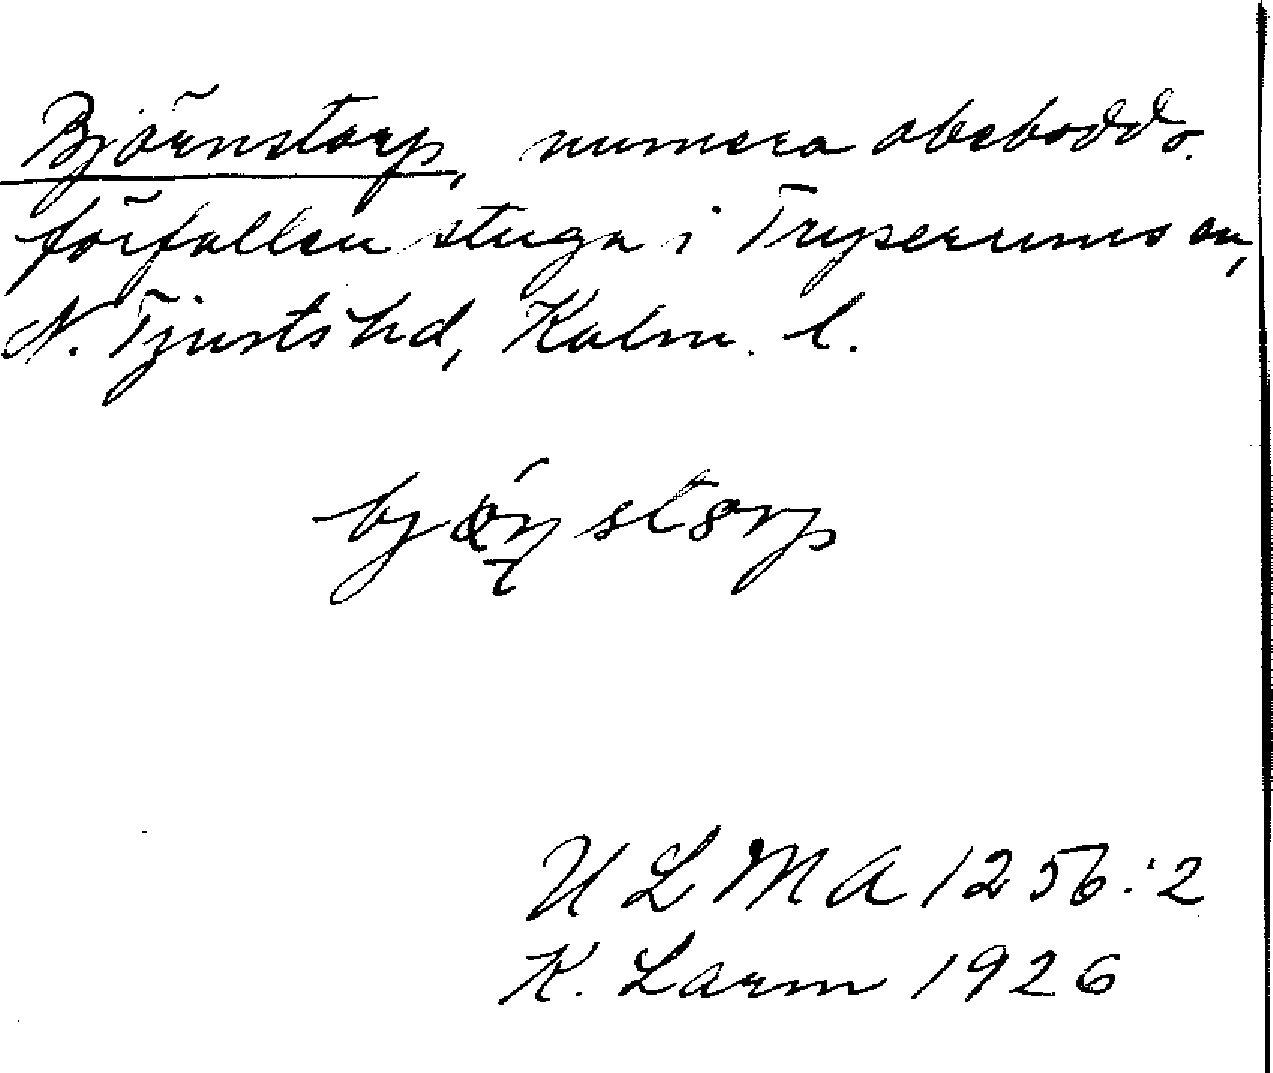 Björnstorp, numera obebodd o.
förfallen stuga i Tryserums sn,
N. Tjusts hd, Kalm. l.
ULMA 1256:2
K. Larm 1926